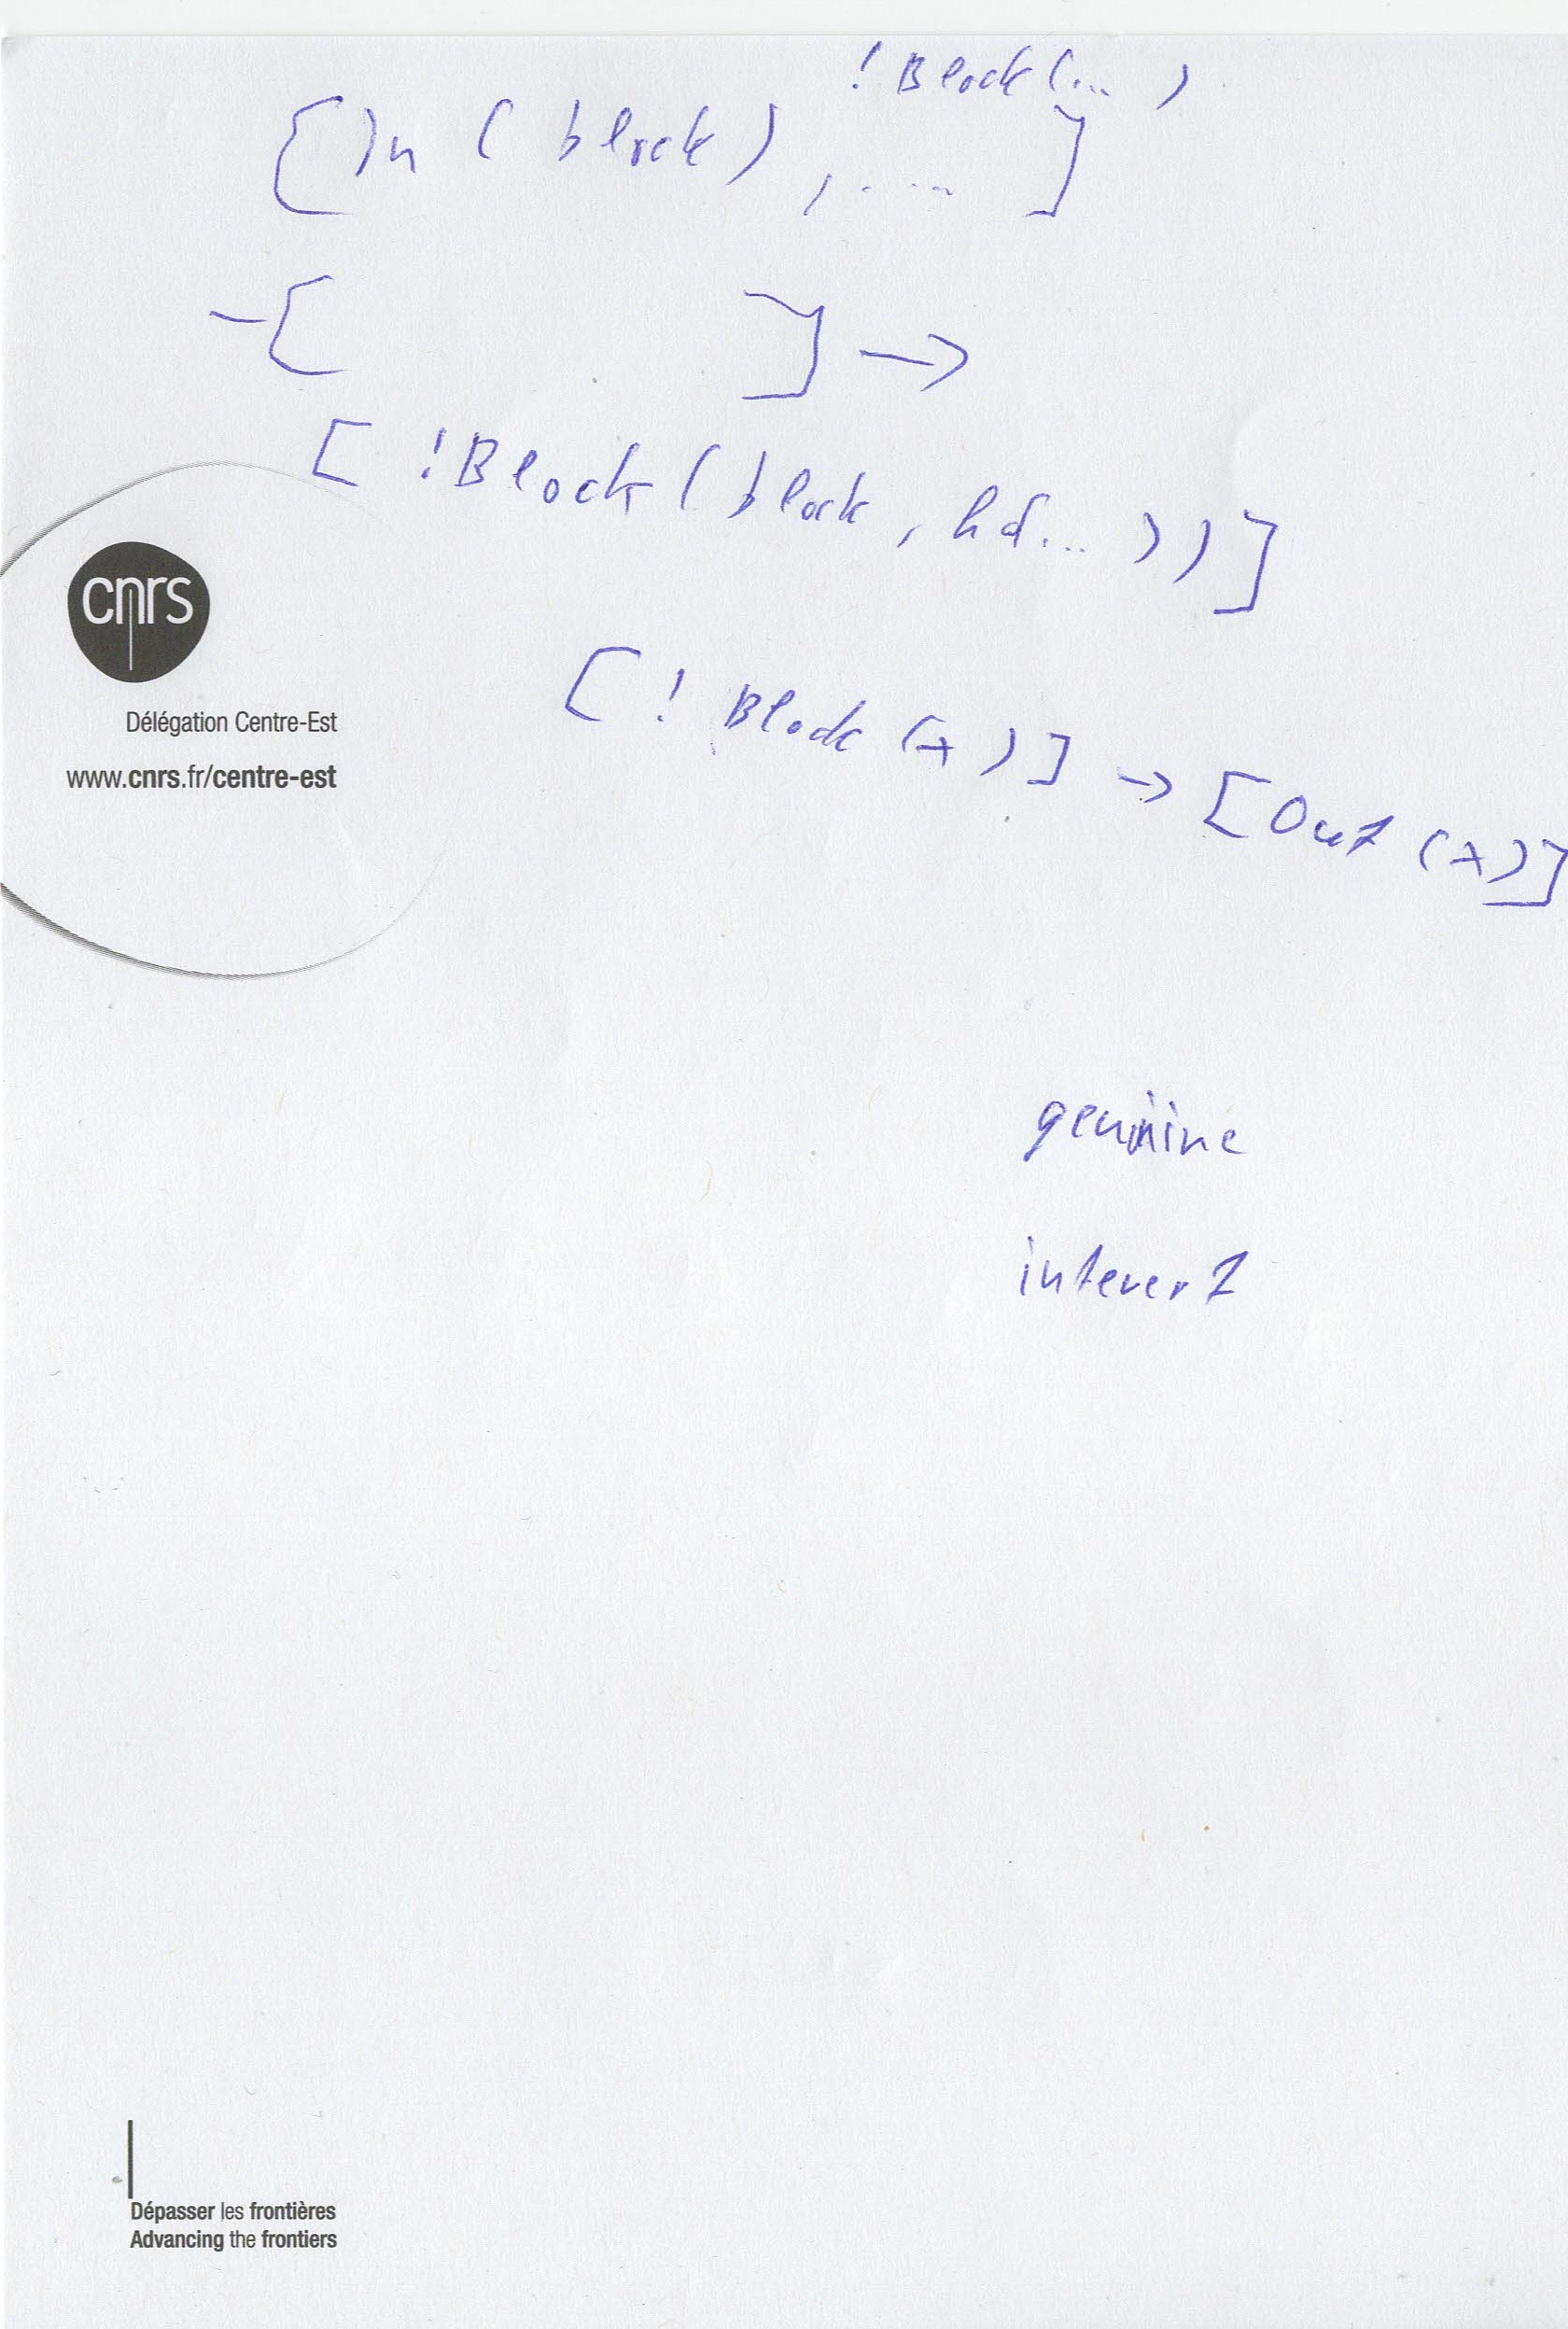 ! Block (... )
[ In ( block ) , .... ]
-[ ] ->
[ ! Block ( block , hd... ) ) ]
cnrs
[ ! Block (x) ] -> [ Out (x) ]
Délégation Centre-Est
www.cnrs.fr/centre-est
genuine
intevert
Dépasser les frontières
Advancing the frontiers